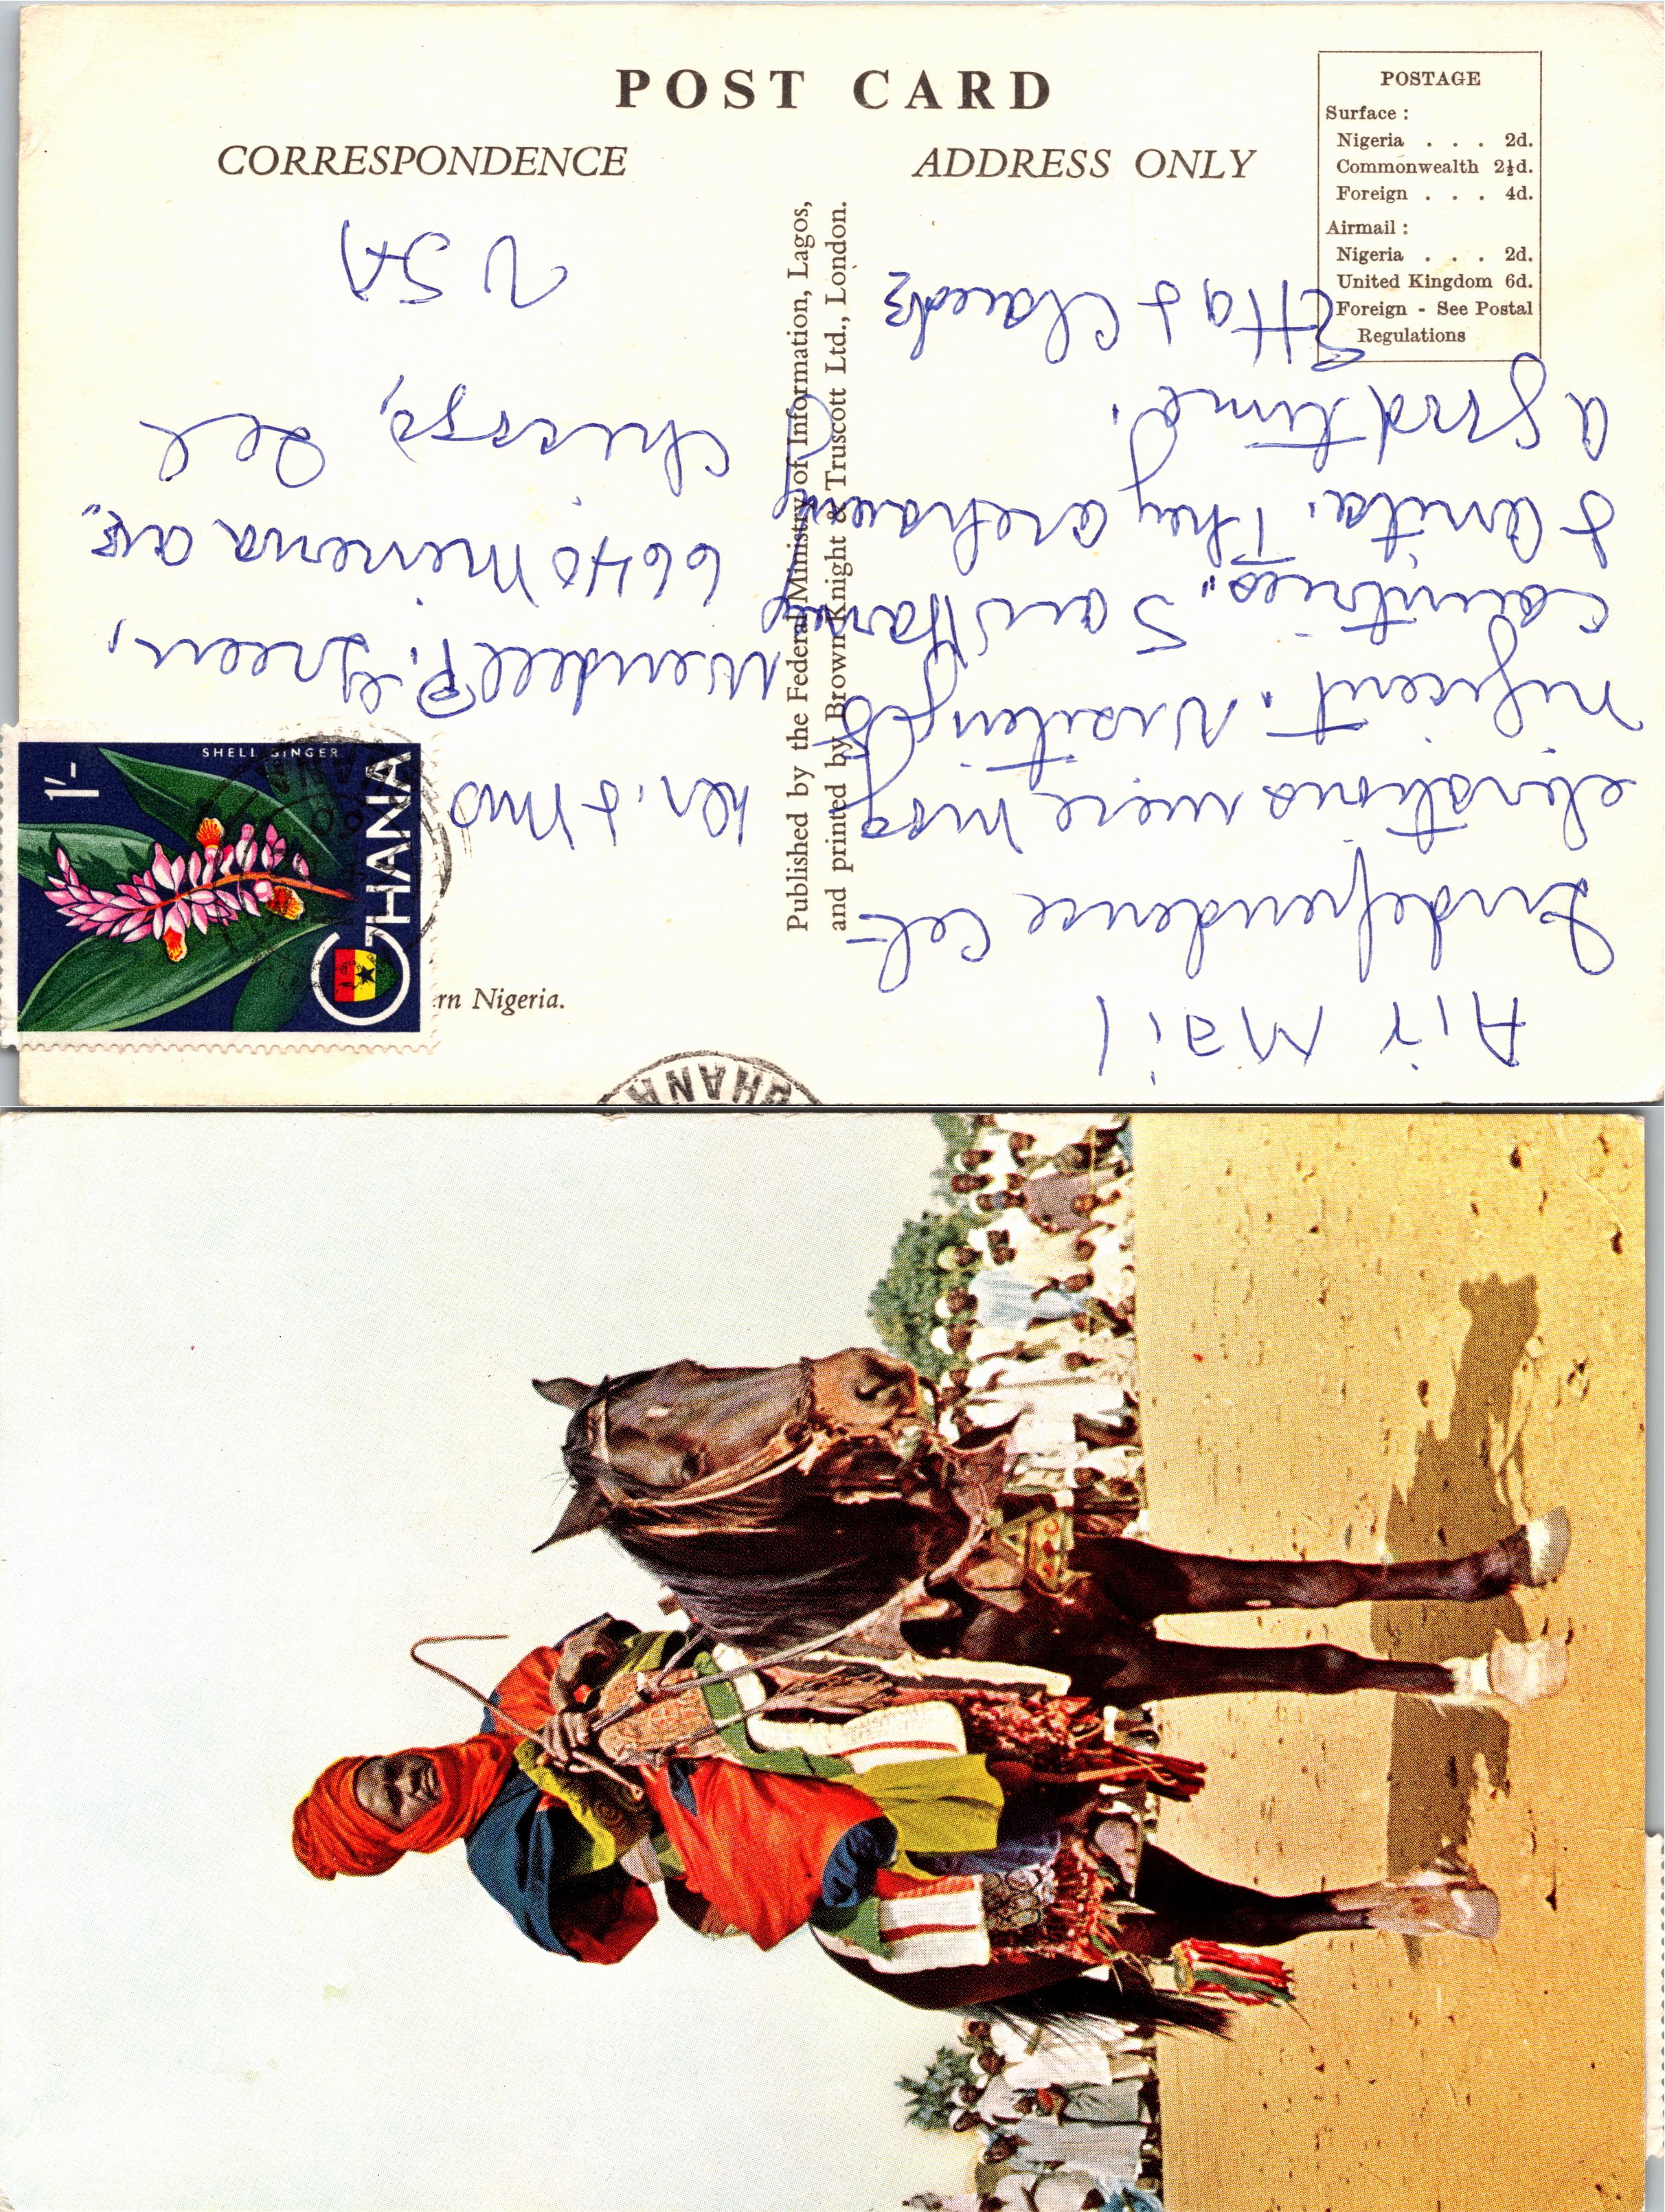 POST CARD
CORRESPONDENCE
ADDRESS ONLY
POSTAGE
Surface :
Nigeria . . . 2d.
Commonwealth 2½d.
Foreign . . . 4d.
Airmail :
Nigeria . . . 2d.
United Kingdom 6d.
Foreign - See Postal
Regulations
Published by the Federal Ministry of Information, Lagos,
and printed by Brown Knight & Truscott Ltd., London.
rn Nigeria.
SHELL GINGER
1/-
GHANA
GHANA
Air Mail
Independence Cel-
ebrations were mag
nificent. Visiting 5
countries. Saw Harvey
& Anita. They are having
a good time.
Etta & Claude
Mr. & Mrs
Wendell P. Green,
6640 Minerva av.
Chicago, Ill
USA